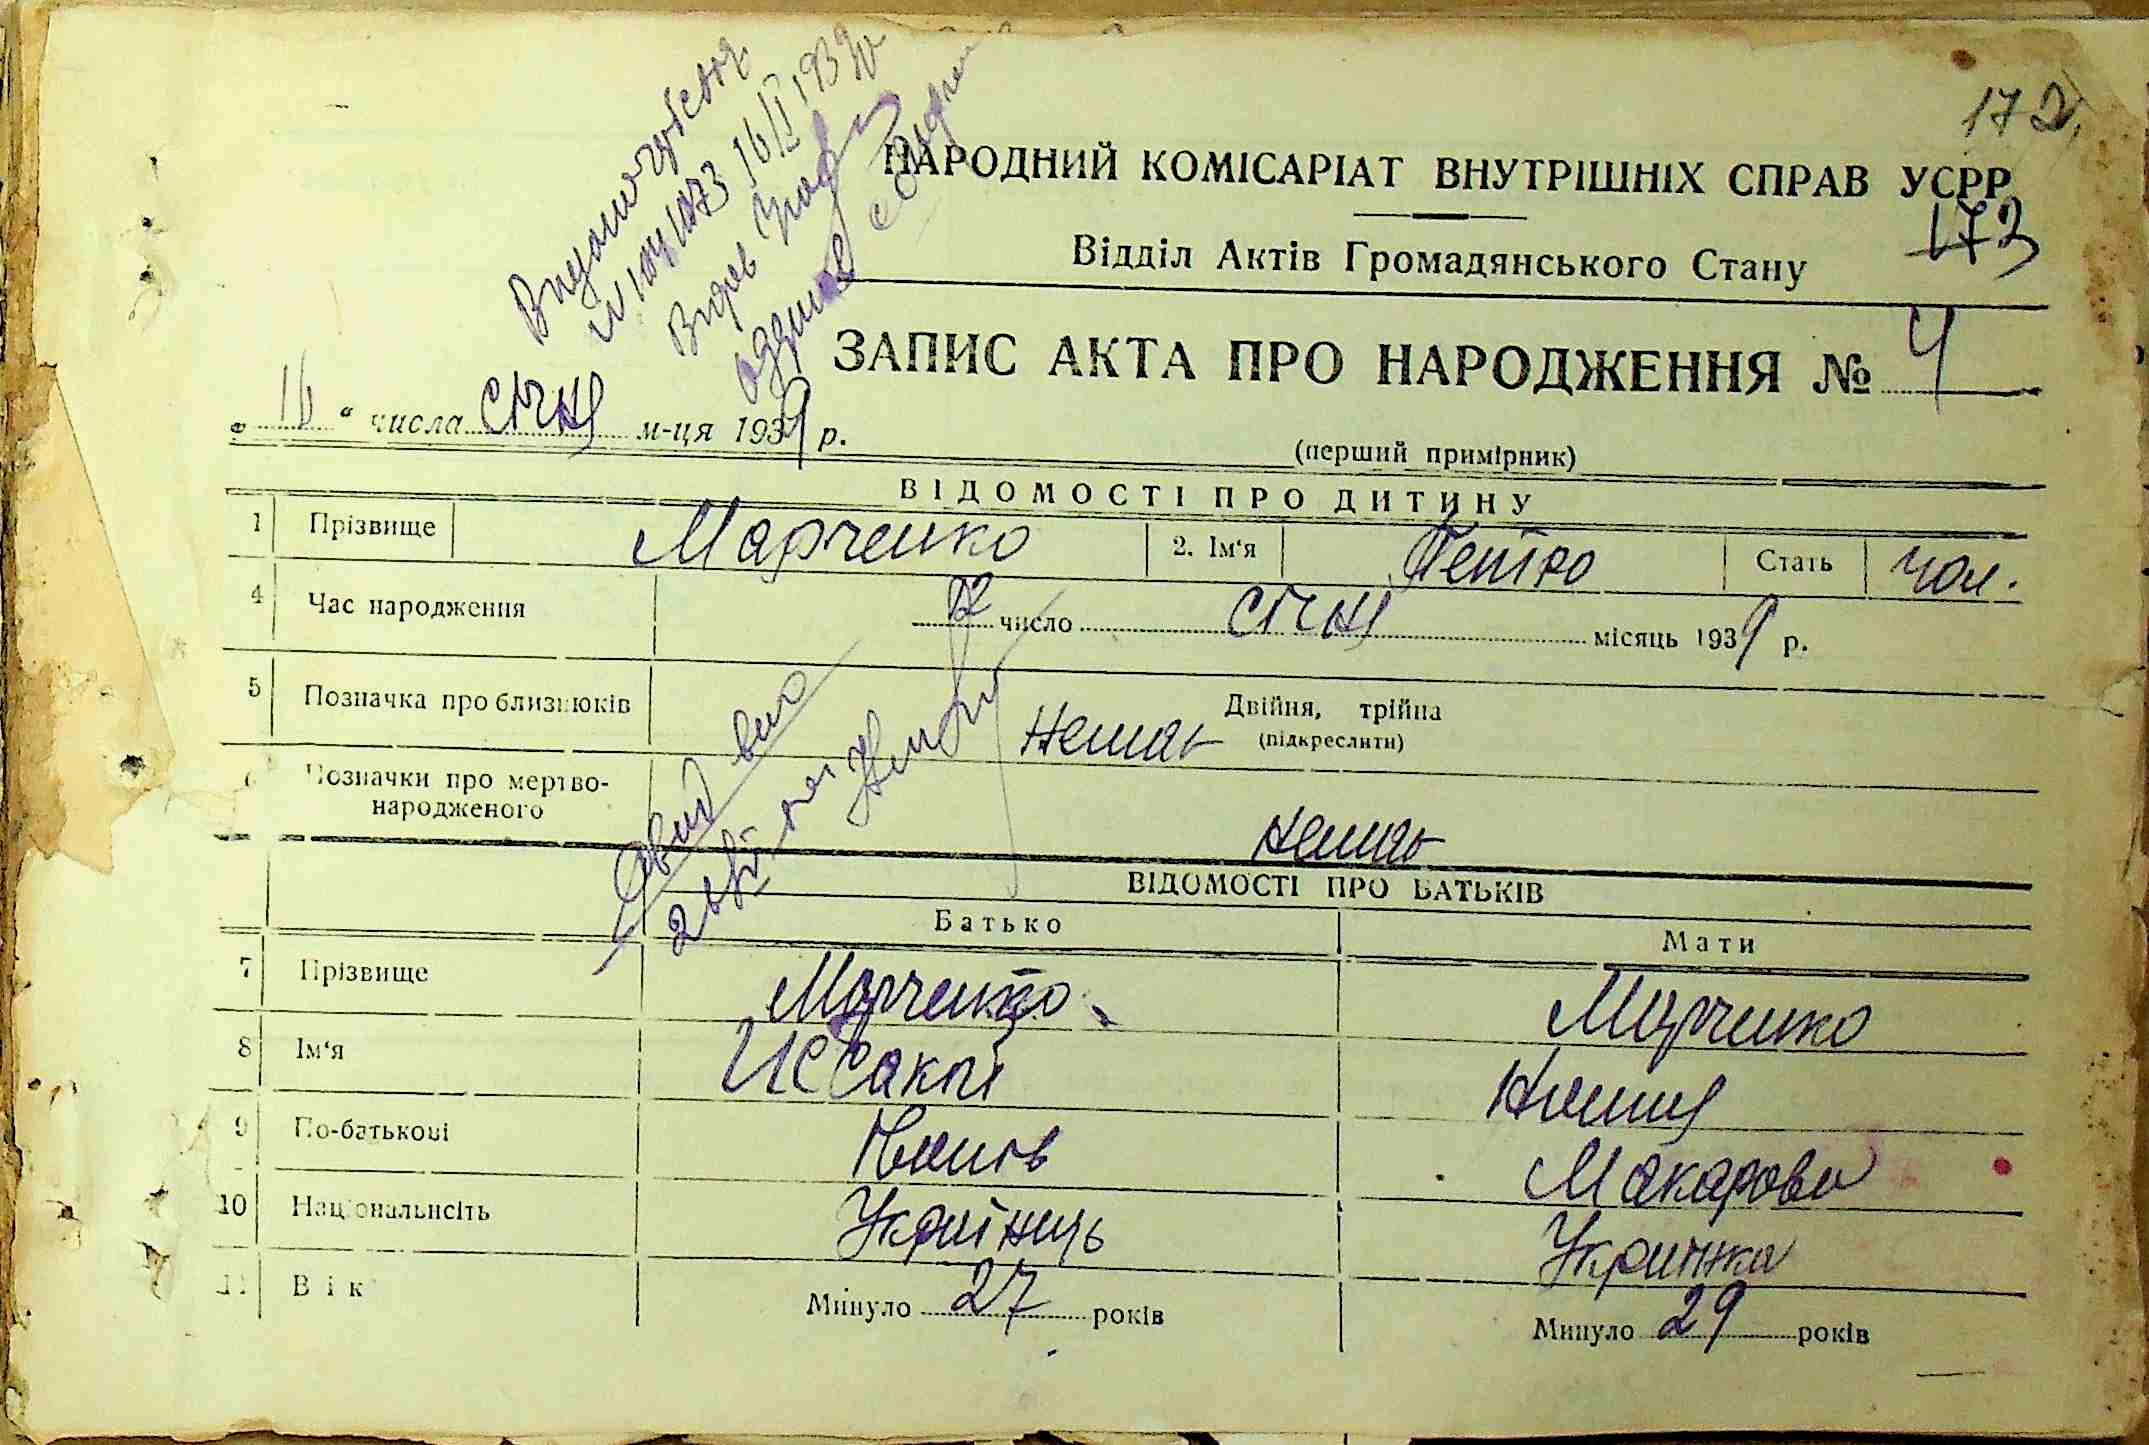 172
НАРОДНИЙ КОМІСАРІАТ ВНУТРІШНІХ СПРАВ УСРР
173
Відділ Актів Громадянського Стану
ЗАПИС АКТА ПРО НАРОДЖЕННЯ № 4
„ 16 “ числа січня м-ця 1939 р.
(перший примірник)
ВІДОМОСТІ ПРО ДИТИНУ
1 Прізвище Марченко 2. Ім'я Петро Стать чол.
4 Час народження 12 число січня місяць 1939 р.
5 Позначка про близнюків Двійня, трійна
немає (підкреслити)
6 Позначки про мертво-
народженого
немає
ВІДОМОСТІ ПРО БАТЬКІВ
Батько Мати
7 Прізвище Марченко Марченко
8 Ім'я
9 По-батькові Макарова
10 Національнсіть Українець Українка
11 Вік Минуло 27 років Минуло 29 років